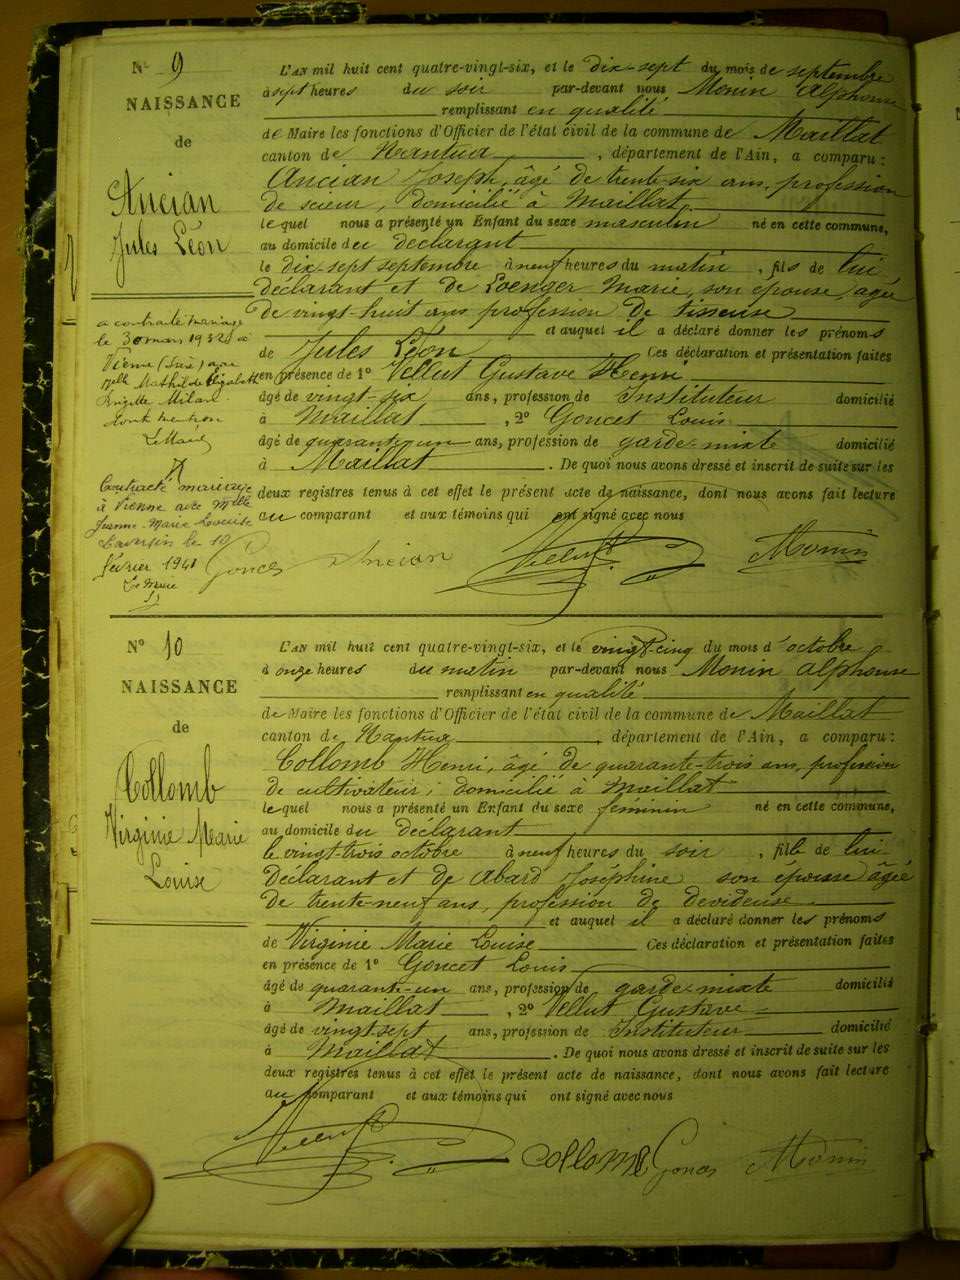 N° 9
NAISSANCE
de
Ancian
Jules Léon
L'AN mil huit cent quatre-vingt-six, et le dix-sept du mois de septembre
à sept heures du soir par-devant nous Monin Alphonse
remplissant en qualité
de Maire les fonctions d'Officier de l'état civil de la commune de Maillat
canton de Nantua, département de l'Ain, a comparu :
Ancian Joseph, âgé de trente-six ans, profession
de scieur, domicilié à Maillat
lequel nous a présenté un Enfant du sexe masculin né en cette commune,
au domicile du déclarant
le dix-sept septembre à neuf heures du matin, fils de lui
déclarant et de Loenger Marie, son épouse, âgée
de vingt-huit ans profession de tisseuse
et auquel il a déclaré donner les prénoms
de Jules Léon Ces déclaration et présentation faites
en présence de 1° Vellut Gustave Henri
âgé de vingt-six ans, profession de Instituteur domicilié
à Maillat, 2° Goncet Louis
âgé de quarante-un ans, profession de garde-mixte domicilié
à Maillat. De quoi nous avons dressé et inscrit de suite sur les
deux registres tenus à cet effet le présent acte de naissance, dont nous avons fait lecture
au comparant et aux témoins qui ont signé avec nous
Goncet Ancian Vellut Monin
a contracté mariage
le 30 mars 1932 à
Vienne (Isère) avec
Melle Mathilde Elisabeth
Brigitte Milan
dont mention
Le Maire
Contracté mariage
à Vienne avec Melle
Jeanne-Marie Louise
le 10
février 1941
Le Maire
N° 10
NAISSANCE
de
Collomb
Virginie Marie
Louise
L'AN mil huit cent quatre-vingt-six, et le vingt-cinq du mois d'octobre
à onze heures du matin par-devant nous Monin Alphonse
remplissant en qualité
de Maire les fonctions d'Officier de l'état civil de la commune de Maillat
canton de Nantua, département de l'Ain, a comparu :
Collomb Henri, âgé de quarante-trois ans, profession
de cultivateur, domicilié à Maillat
lequel nous a présenté un Enfant du sexe féminin né en cette commune,
au domicile du déclarant
le vingt-trois octobre à neuf heures du soir, fille de lui
déclarant et de Abard Joséphine son épouse âgée
de trente-neuf ans, profession de devideuse
et auquel il a déclaré donner les prénoms
de Virginie Marie Louise Ces déclaration et présentation faites
en présence de 1° Goncet Louis
âgé de quarante-un ans, profession de garde-mixte domicilié
à Maillat, 2° Vellut Gustave
âgé de vingt-sept ans, profession de Instituteur domicilié
à Maillat. De quoi nous avons dressé et inscrit de suite sur les
deux registres tenus à cet effet le présent acte de naissance, dont nous avons fait lecture
au comparant et aux témoins qui ont signé avec nous
Vellut Collomb Goncet Monin